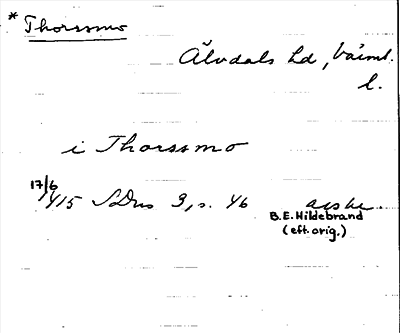 * Thorssmo
Älvdals hd, Värml.
l.
i Thorssmo
17/6
1415 SDns 3, s. 46 avskr.
B.E. Hildebrand
(eft. orig.)